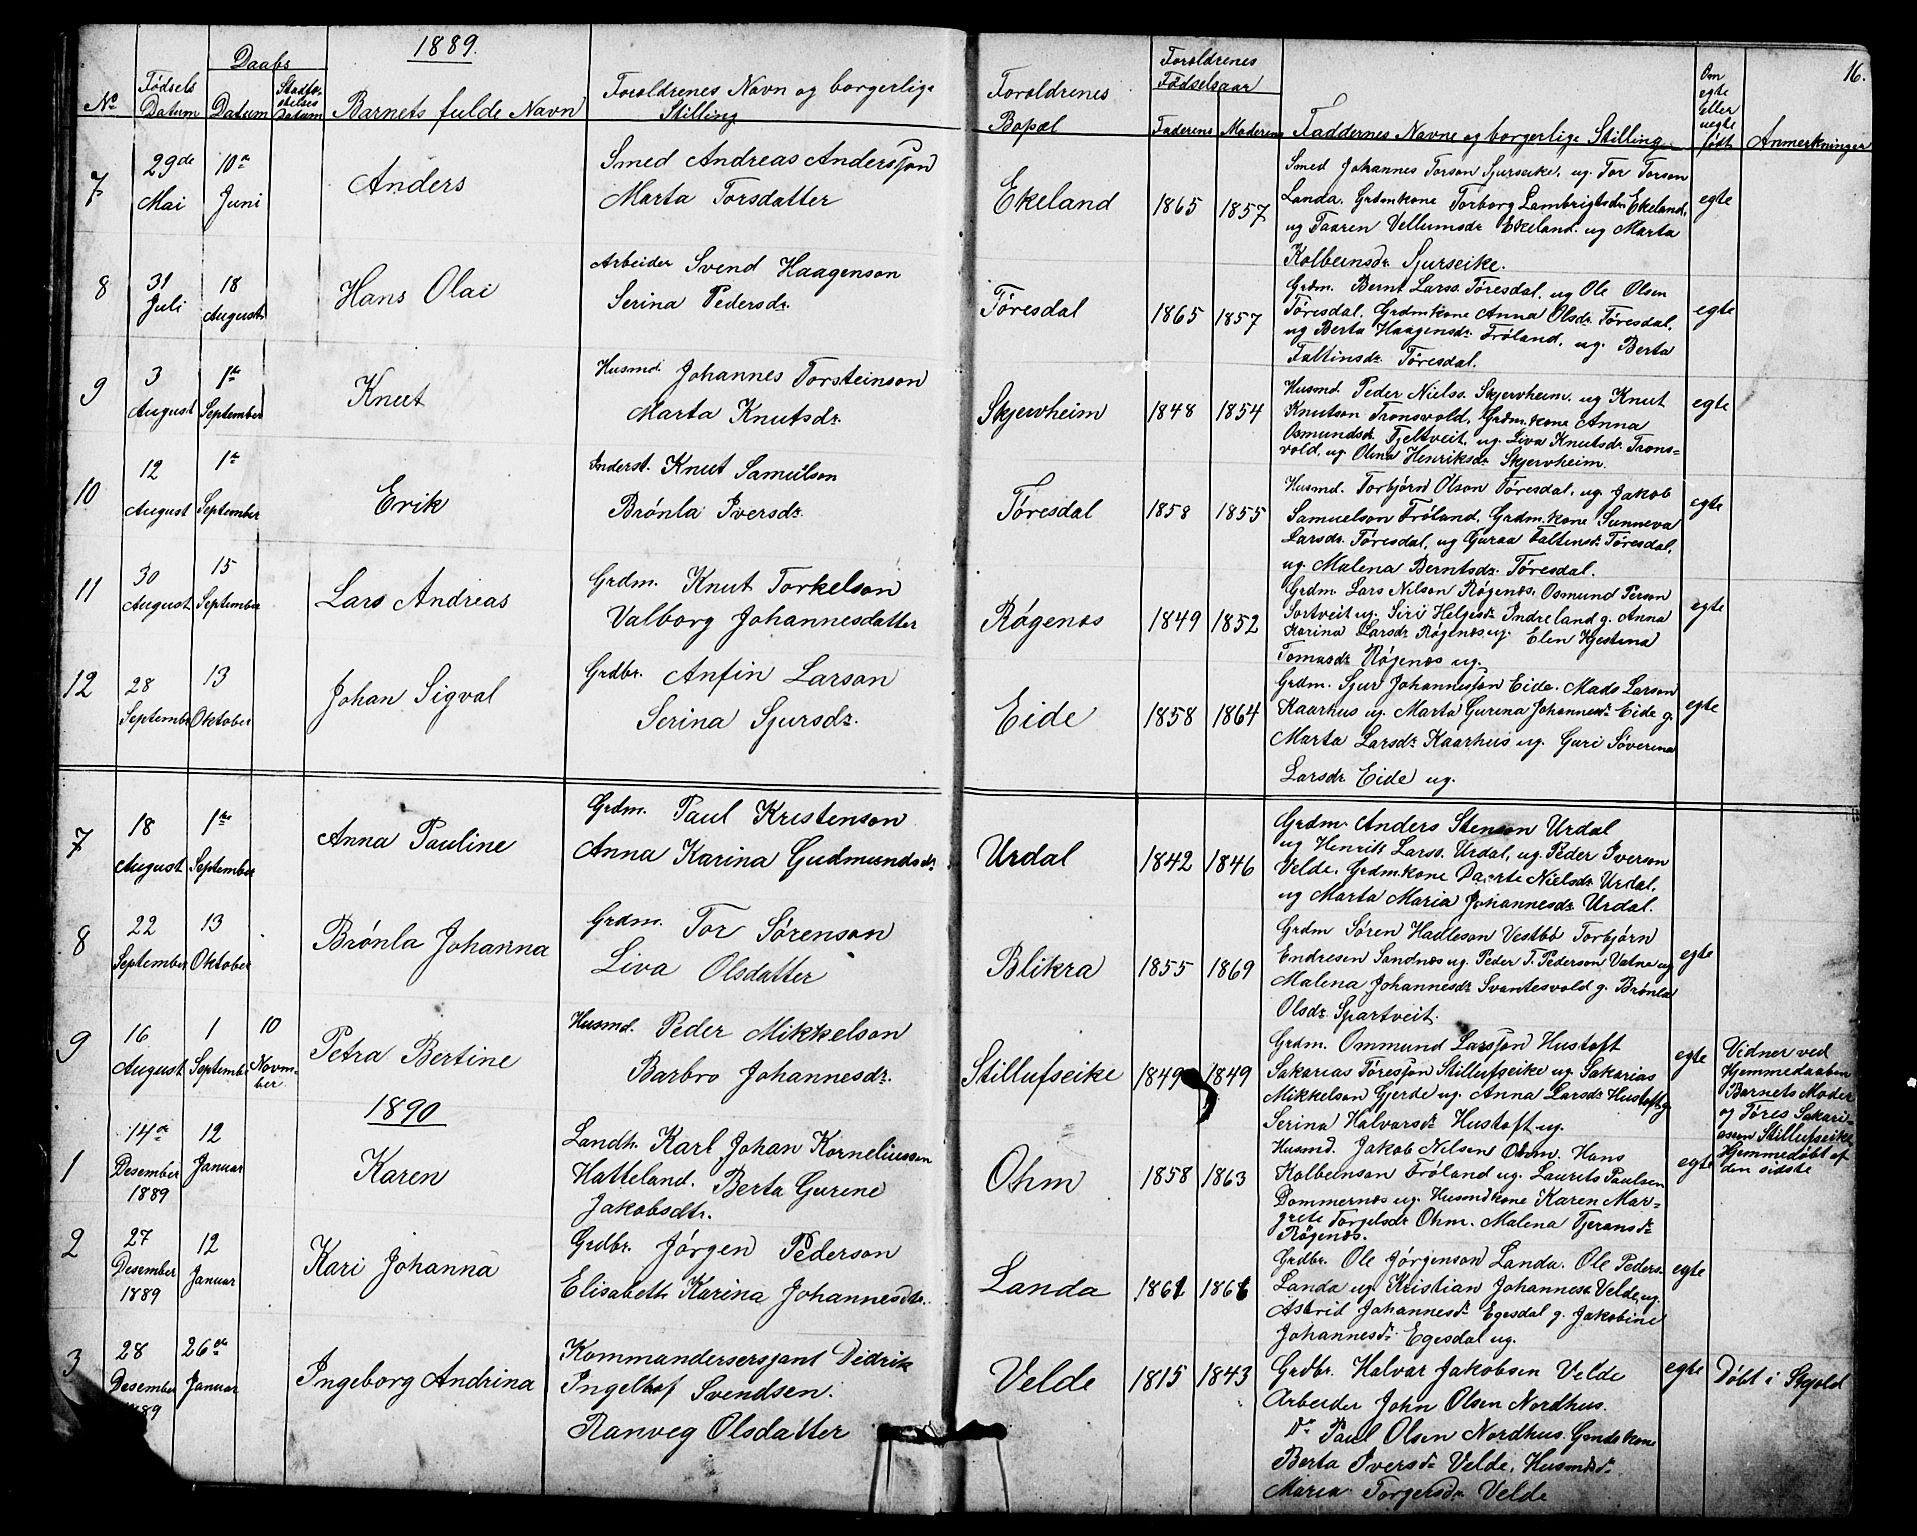 1889.
16.
No
Fødsels Datum
Daabs Datum
Stadfæstelses Datum
Barnets fulde Navn
Foroldrenes Navn og borgerlige Stilling
Foroldrenes Bopæl
Foroldrenes Fødselsaar
Faderens
Moderens
Faddernes Navne og borgerlige Stilling
Om egte Eller uegte født
Anmerkninger
7
29de Mai
10de Juni
Anders
Smed Andreas Andersson
Marta Torsdatter
Ekeland
1865
1857
Smed Johannes Torson Sjurseike, ug. Tor Torson
Landa, Grdmkone Torborg Lambrigtsdr. Ekeland,
ug Taaren Vellumsdr Ekeland. ug Marta
Kolbeinsdr. Sjurseike.
egte
8
31 Juli
18 August
Hans Olai
Arbeider Svend Haagenson
Serina Pedersdr.
Tøresdal
1865
1857
Grdm. Bernt Larss. Tøresdal, ug Ole Olsen
Tøresdal, Grdmkone Anna Olsdr. Tøresdal,
ug Berta Haagensdr. Frøland, ug. Berta
Faltinsdr. Tøresdal.
egte
9
3 August
1te September
Knut
Husmd. Johannes Torsteinson
Marta Knutsdr.
Skjervheim
1848
1854
Husmd. Peder Nielss. Skjervheim. ug Knut
Knutson Tronsvold, Grdm.kone Anna
Osmundsdr. Tjeltveit, ug. Liva Knutsdr. Trons=
vold, ug Olina Henriksdr. Skjervheim.
egte
10
12 August
1te September
Erik
Inderst. Knut Samulson
Brønla Iversdr.
Tøresdal
1858
1855
Husmd. Torbjørn Olson Tøresdal, ug. Jakob
Samuelson Frøland, Grdm.kone Sunneva
Larsdr. Tøresdal, ug Guraa Faltensdr. Tøresdal,
ug. Malena Berntsdr. Tøresdal.
egte
11
30 August
15 September
Lars Andreas
Grdm. Knut Torkelson
Valborg Johannesdatter
Røgenæs
1849
1852
Grdm. Lars Nilson Røgenæs, Osmund Person
Sortveit ug. Siri Helgesdr. Indreland g. Anna
Karina Larsdr. Røgenæs ug. Elen Kjestina
Tomasdr. Røgenæs ug.
egte
12
28 September
13 Oktober
Johan Sigval
Grdbr. Anfin Larson
Serina Sjursdr.
Eide
1858
1864
Grdm. Sjur Johannesson Eide. Mads Larson
Kaarhus ug. Marta Gurina Johannesdr. Eide g.
Marta Larsdr. Kaarhus ug. Guri Søverina
Larsdr. Eide ug.
egte
7
18 August
1te September
Anna Pauline
Grdm. Paul Kristenson
Anna Karina Gudmundsdr.
Urdal
1842
1846
Grdm. Anders Stenson Urdal
ug Henrik Larss. Urdal, ug. Peder Iverson
Velde, Grdmkone Daarte Nielsdr. Urdal,
ug Marta Maria Johannesdr. Urdal.
8
22 September
13 Oktober
Brønla Johanna
Grdm. Tor Sørenson
Liva Olsdatter
Blikra
1855
1869
Grdm Søren Hadleson Vestbø Torbjørn
Endresen Sandnæs ug. Peder T. Pederson Vatne ug
Malena Johannesdr. Svantesvold g. Brønla
Olsdr. Spartveit.
egte
9
16 August
1 September
10 Novm-ber
Petra Bertine
Husmd. Peder Mikkelson
Barbro Johannesdr.
Stillufseike
1849
1849
Grdm. Ommund Larsson Hustoft
Sakarias Tøresson Stillufseike ug. Sakarias
Mikkelson Gjerde ug. Anna Larsdr. Hustoft g
Serina Halvarsdr. Hustoft ug.
egte
Vidner ved
Hjemmedaaben
Barnets Moder
og Tøres Sakari-
asen Stillufseike
Hjemmedøbt af
den sidste
1890
1
14de Desember 1889
12 Januar
Karen
Landh. Karl Johan Korneliussen
Hatteland. Berta Gurine
Jakobsdtr.
Ohm
1858
1863
Husmd. Jakob Nilsen Ohm. Hans
Kolbeinson Frøland ug. Laurits Paulsen
Dommersnæs ug. Husmdkone Karen Mar-
grete Torgelsdr Ohm. Malena Tjeransdr.
Røgenæs.
egte
2
27 Desember 1889
12 Januar
Kari Johanna
Grdbr. Jørgen Pederson
Elisabeth Karina Johannesdtr.
Landa
1861
1861
Grdbr. Ole Jørgenson Landa. Ole Peders.
Landa ug Kristian Johanness Velde, ug
Astrid Johannesdr. Egesdal g. Jakobine
Johannesdr. Egesdal ug.
egte
3
28 Desember 1889
26de Januar
Ingeborg Andrina
Kommandersersjant Didrik
Ingelhof Svendsen.
Ranveg Olsdatter
Velde
1815
1843
Grdbr. Halvar Jakobsen Velde
Arbeider John Olsen Nordhus.
Do Paul Olsen Nordhus. Grndskone
Berta Iversdr. Velde, Husmdsdr.
Maria Torgersdr. Velde
egte
Døbt i Skjold